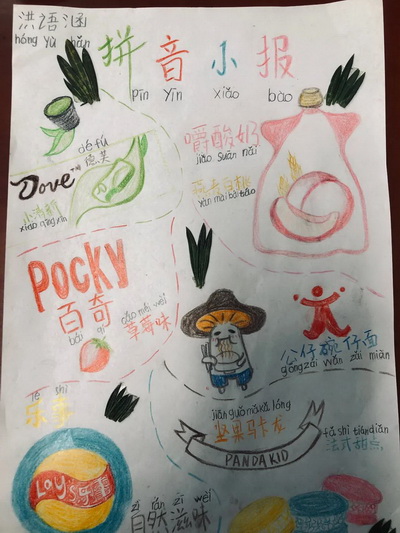 洪语涵
hóng yǔ hán
拼音小报
pīn yīn xiǎo bào
dé fú
德芙
Dove
小清新
xiǎo qīng xīn
嚼酸奶
jiáo suān nǎi
燕麦白桃
yàn mài bái táo
Pocky
百奇
bǎi qí
cǎo méi wèi
草莓味
公仔碗仔面
gōng zǎi wǎn zǎi miàn
lè shì
乐事
Lay's乐事
jiān guǒ mǎ kǎ lóng
坚果马卡龙
PANDA KID
fǎ shì tián diǎn
法式甜点
zì rán zī wèi
自然滋味